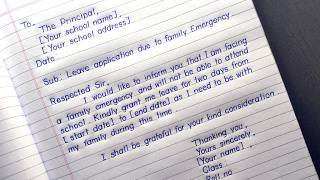 To,
The Principal,
[Your school name],
[Your school address]
Date:
Sub: Leave application due to family Emergency.
Respected Sir,
I would like to inform you that I am facing
a family emergency and will not be able to attend
school. Kindly grant me leave for two days from
[start date] to [end date] as I need to be with
my family during this time.
I shall be grateful for your kind consideration.
Thanking you,
Yours sincerely,
[Your name].
Class
Roll no